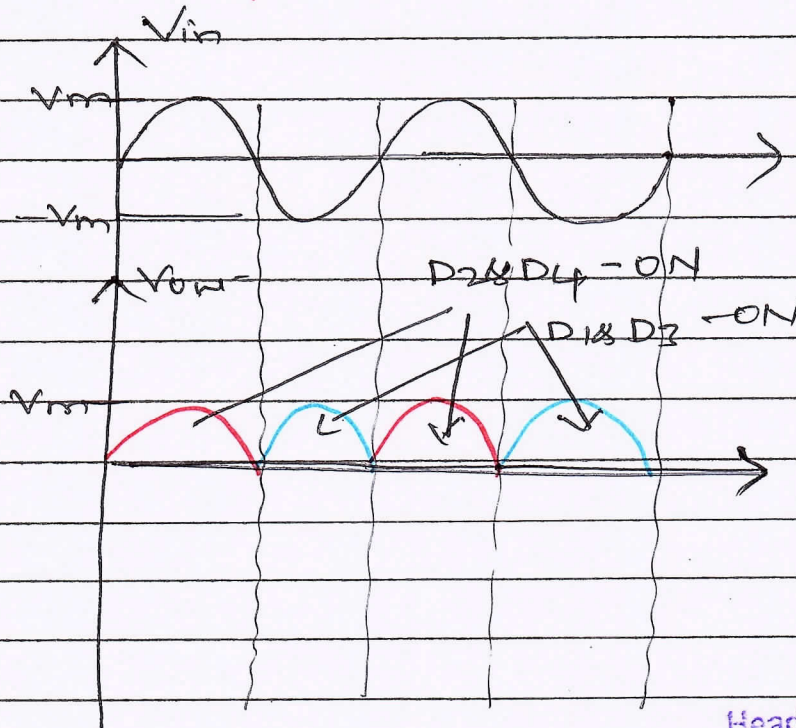 Vin
Vm
-Vm
Vout
D2 & D4 - ON
D1 & D3 - ON
Vm